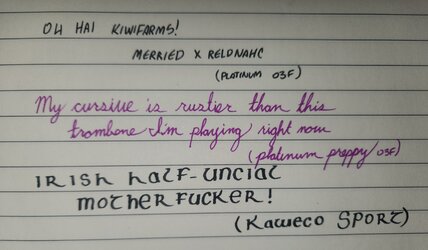 OH HAI KIWIFARMS!
MERRIED X RELDNAHC
(PLATINUM 03F)
My cursive is rustier than this
trombone I'm playing right now
(platinum preppy/03F)
IRISH HALF-UNCIAL
MOTHERFUCKER!
(KAWECO SPORT)